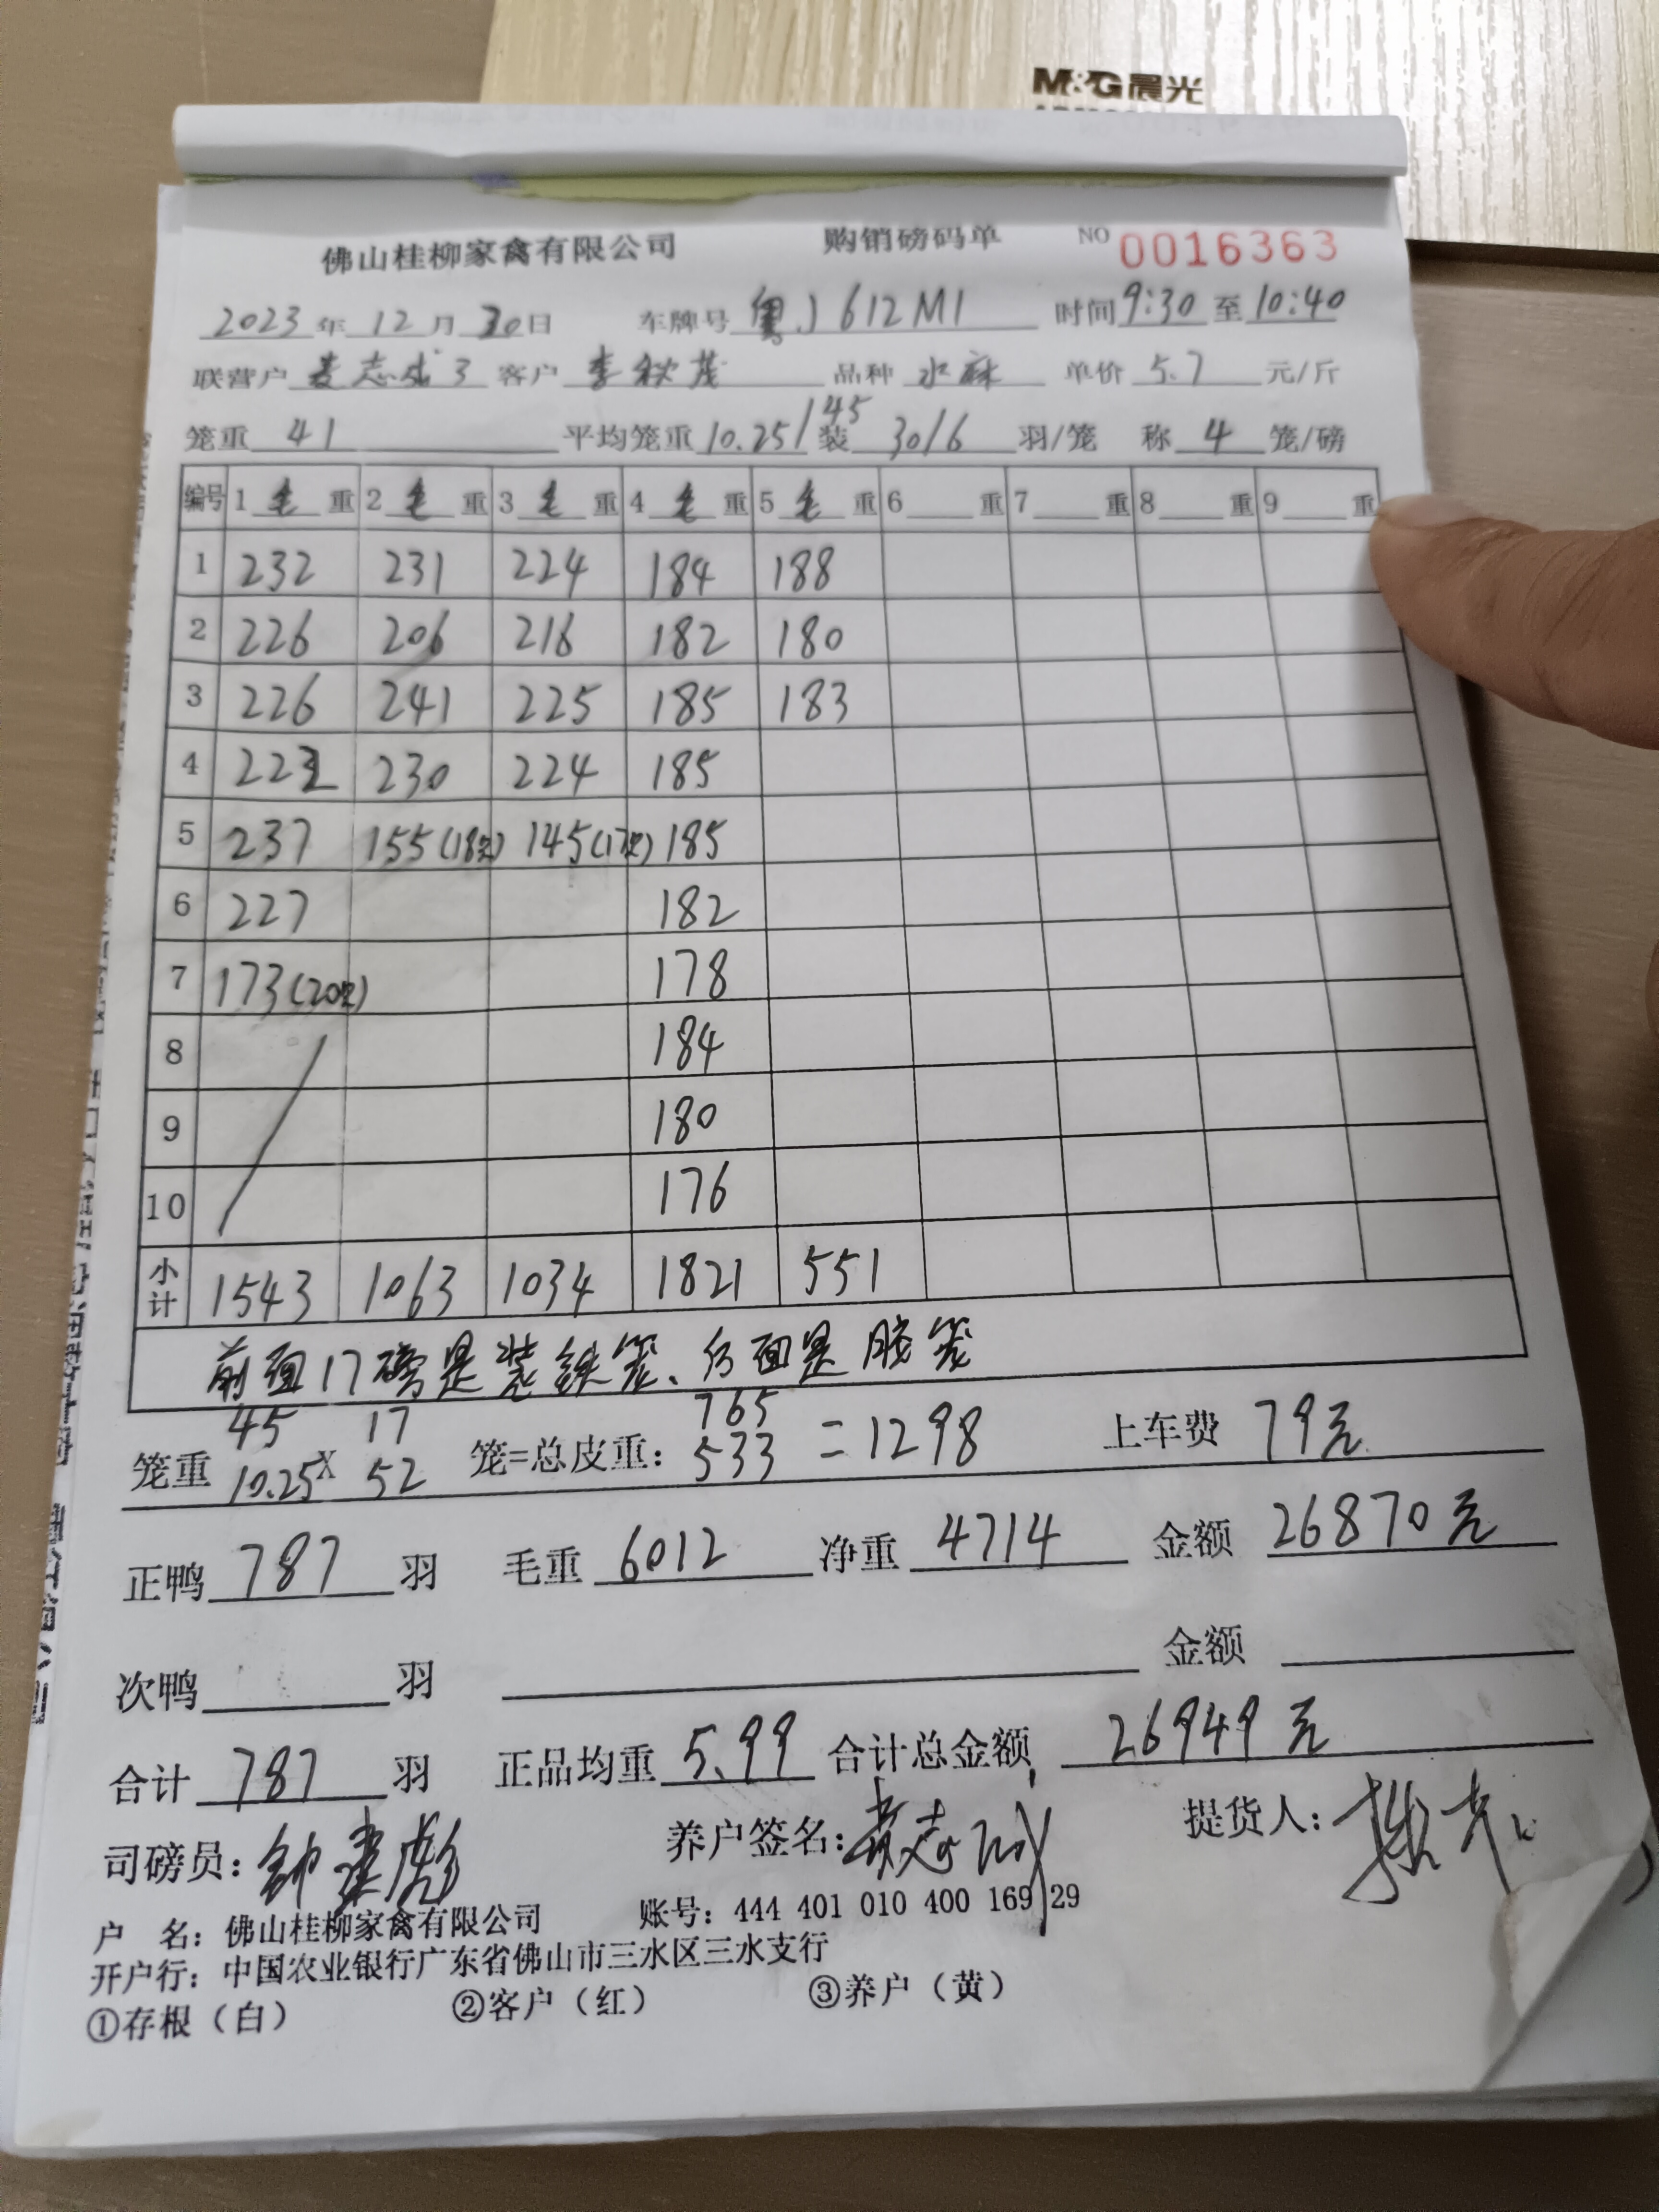 M&G晨光
佛山桂柳家禽有限公司 购销磅码单 NO 0016363
2023年12月30日 车牌号 粤J612M1 时间 9:30 至 10:40
联营户 麦志成3 客户 李秋茂 品种 水麻 单价 5.7 元/斤
笼重 41 平均笼重 10.25/45 装 30/6 羽/笼 称 4 笼/磅
编号 1 毛 重 2 毛 重 3 毛 重 4 毛 重 5 毛 重 6 重 7 重 8 重 9 重
1 232 231 224 184 188
2 226 206 216 182 180
3 226 241 225 185 183
4 222 230 224 185
5 237 155(18只) 145(17只) 185
6 227 182
7 173(20只) 178
8 184
9 180
10 176
小计 1543 1063 1034 1821 551
前面17磅是装铁笼、后面是胶笼
45 17 765
笼重 10.25 X 52 笼=总皮重: 533 =1298 上车费 79元
正鸭 787 羽 毛重 6012 净重 4714 金额 26870元
次鸭 羽 金额
合计 787 羽 正品均重 5.99 合计总金额 26949元
司磅员: 钟建彪 养户签名: 麦志成 提货人:
户 名: 佛山桂柳家禽有限公司 账号: 444 401 010 400 169 29
开户行: 中国农业银行广东省佛山市三水区三水支行
①存根（白） ②客户（红） ③养户（黄）